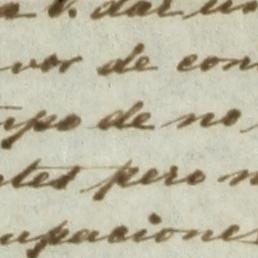 a V. dar un
vor de con
mpo de no
ntes pero n
upaciones